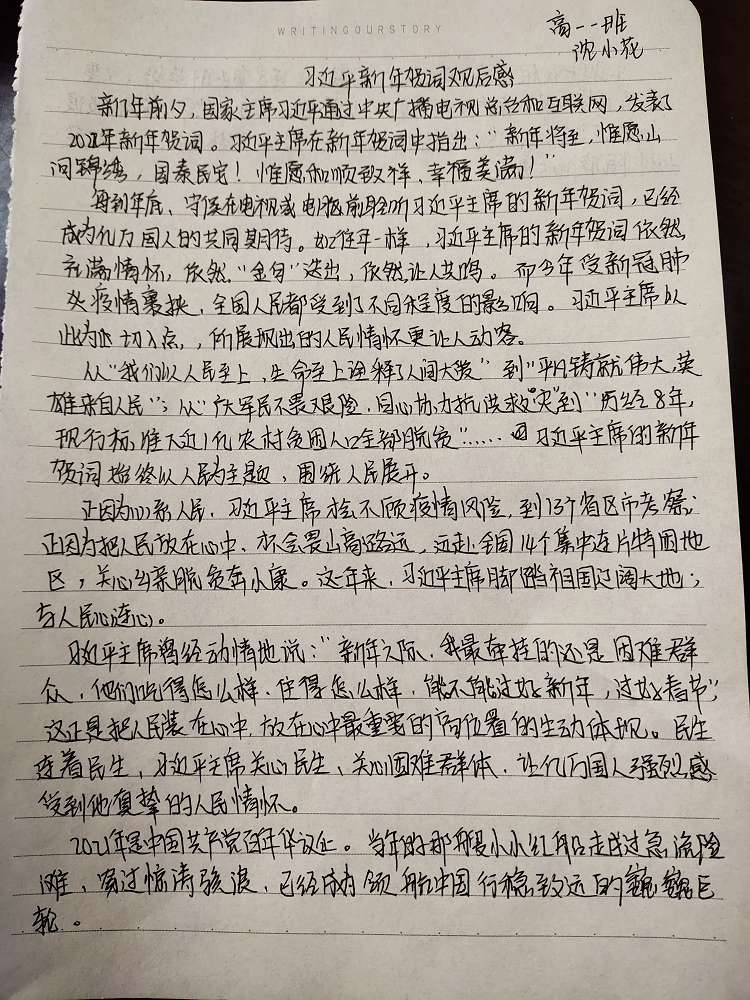 WRITINGOURSTORY
高一一班
沈小花
习近平新年贺词观后感
新年前夕，国家主席习近平通过中央广播电视总台和互联网，发表了
2021年新年贺词。习近平主席在新年贺词中指出：“新年将至，惟愿山
河锦绣，国泰民安！惟愿和顺致祥，幸福美满！”
每到年底、守候在电视或电脑前聆听习近平主席的新年贺词，已经
成为亿万国人的共同期待。如往年一样，习近平主席的新年贺词依然
充满情怀，依然“金句”迭出，依然让人共鸣。而今年受新冠肺
炎疫情裹挟，全国人民都受到了不同程度的影响。习近平主席以
此为切入点，所展现出的人民情怀更让人动容。
从“我们以人民至上，生命至上诠释了人间大爱”到“平凡铸就伟大，英
雄来自人民”；从“广大军民不畏艰险，同心协力抗洪救灾”到“历经8年，
现行标准大近1亿农村贫困人口全部脱贫”……习近平主席的新年
贺词始终以人民为主题，围绕人民展开。
正因为心系人民，习近平主席才会不顾疫情风险，到13个省区市考察；
正因为把人民放在心中、亦会畏山高路远，远赴全国14个集中连片特困地
区，关心乡亲脱贫奔小康。这一年来，习近平主席脚踏祖国辽阔大地；
与人民心连心。
习近平主席曾经动情地说：“新年之际，我最牵挂的还是困难群
众，他们吃得怎么样，住得怎么样，能不能过好新年，过好春节”；
这正是把人民装在心中，放在心中最重要的高位置的生动体现。民生
连着民生，习近平主席关心民生、关心困难群体，让亿万国人强烈感
受到他真挚的人民情怀。
2021年是中国共产党百年华诞。当年的那艘小小红船走过急流险
滩，穿过惊涛骇浪，已经成为领航中国行稳致远的巍巍巨
轮。